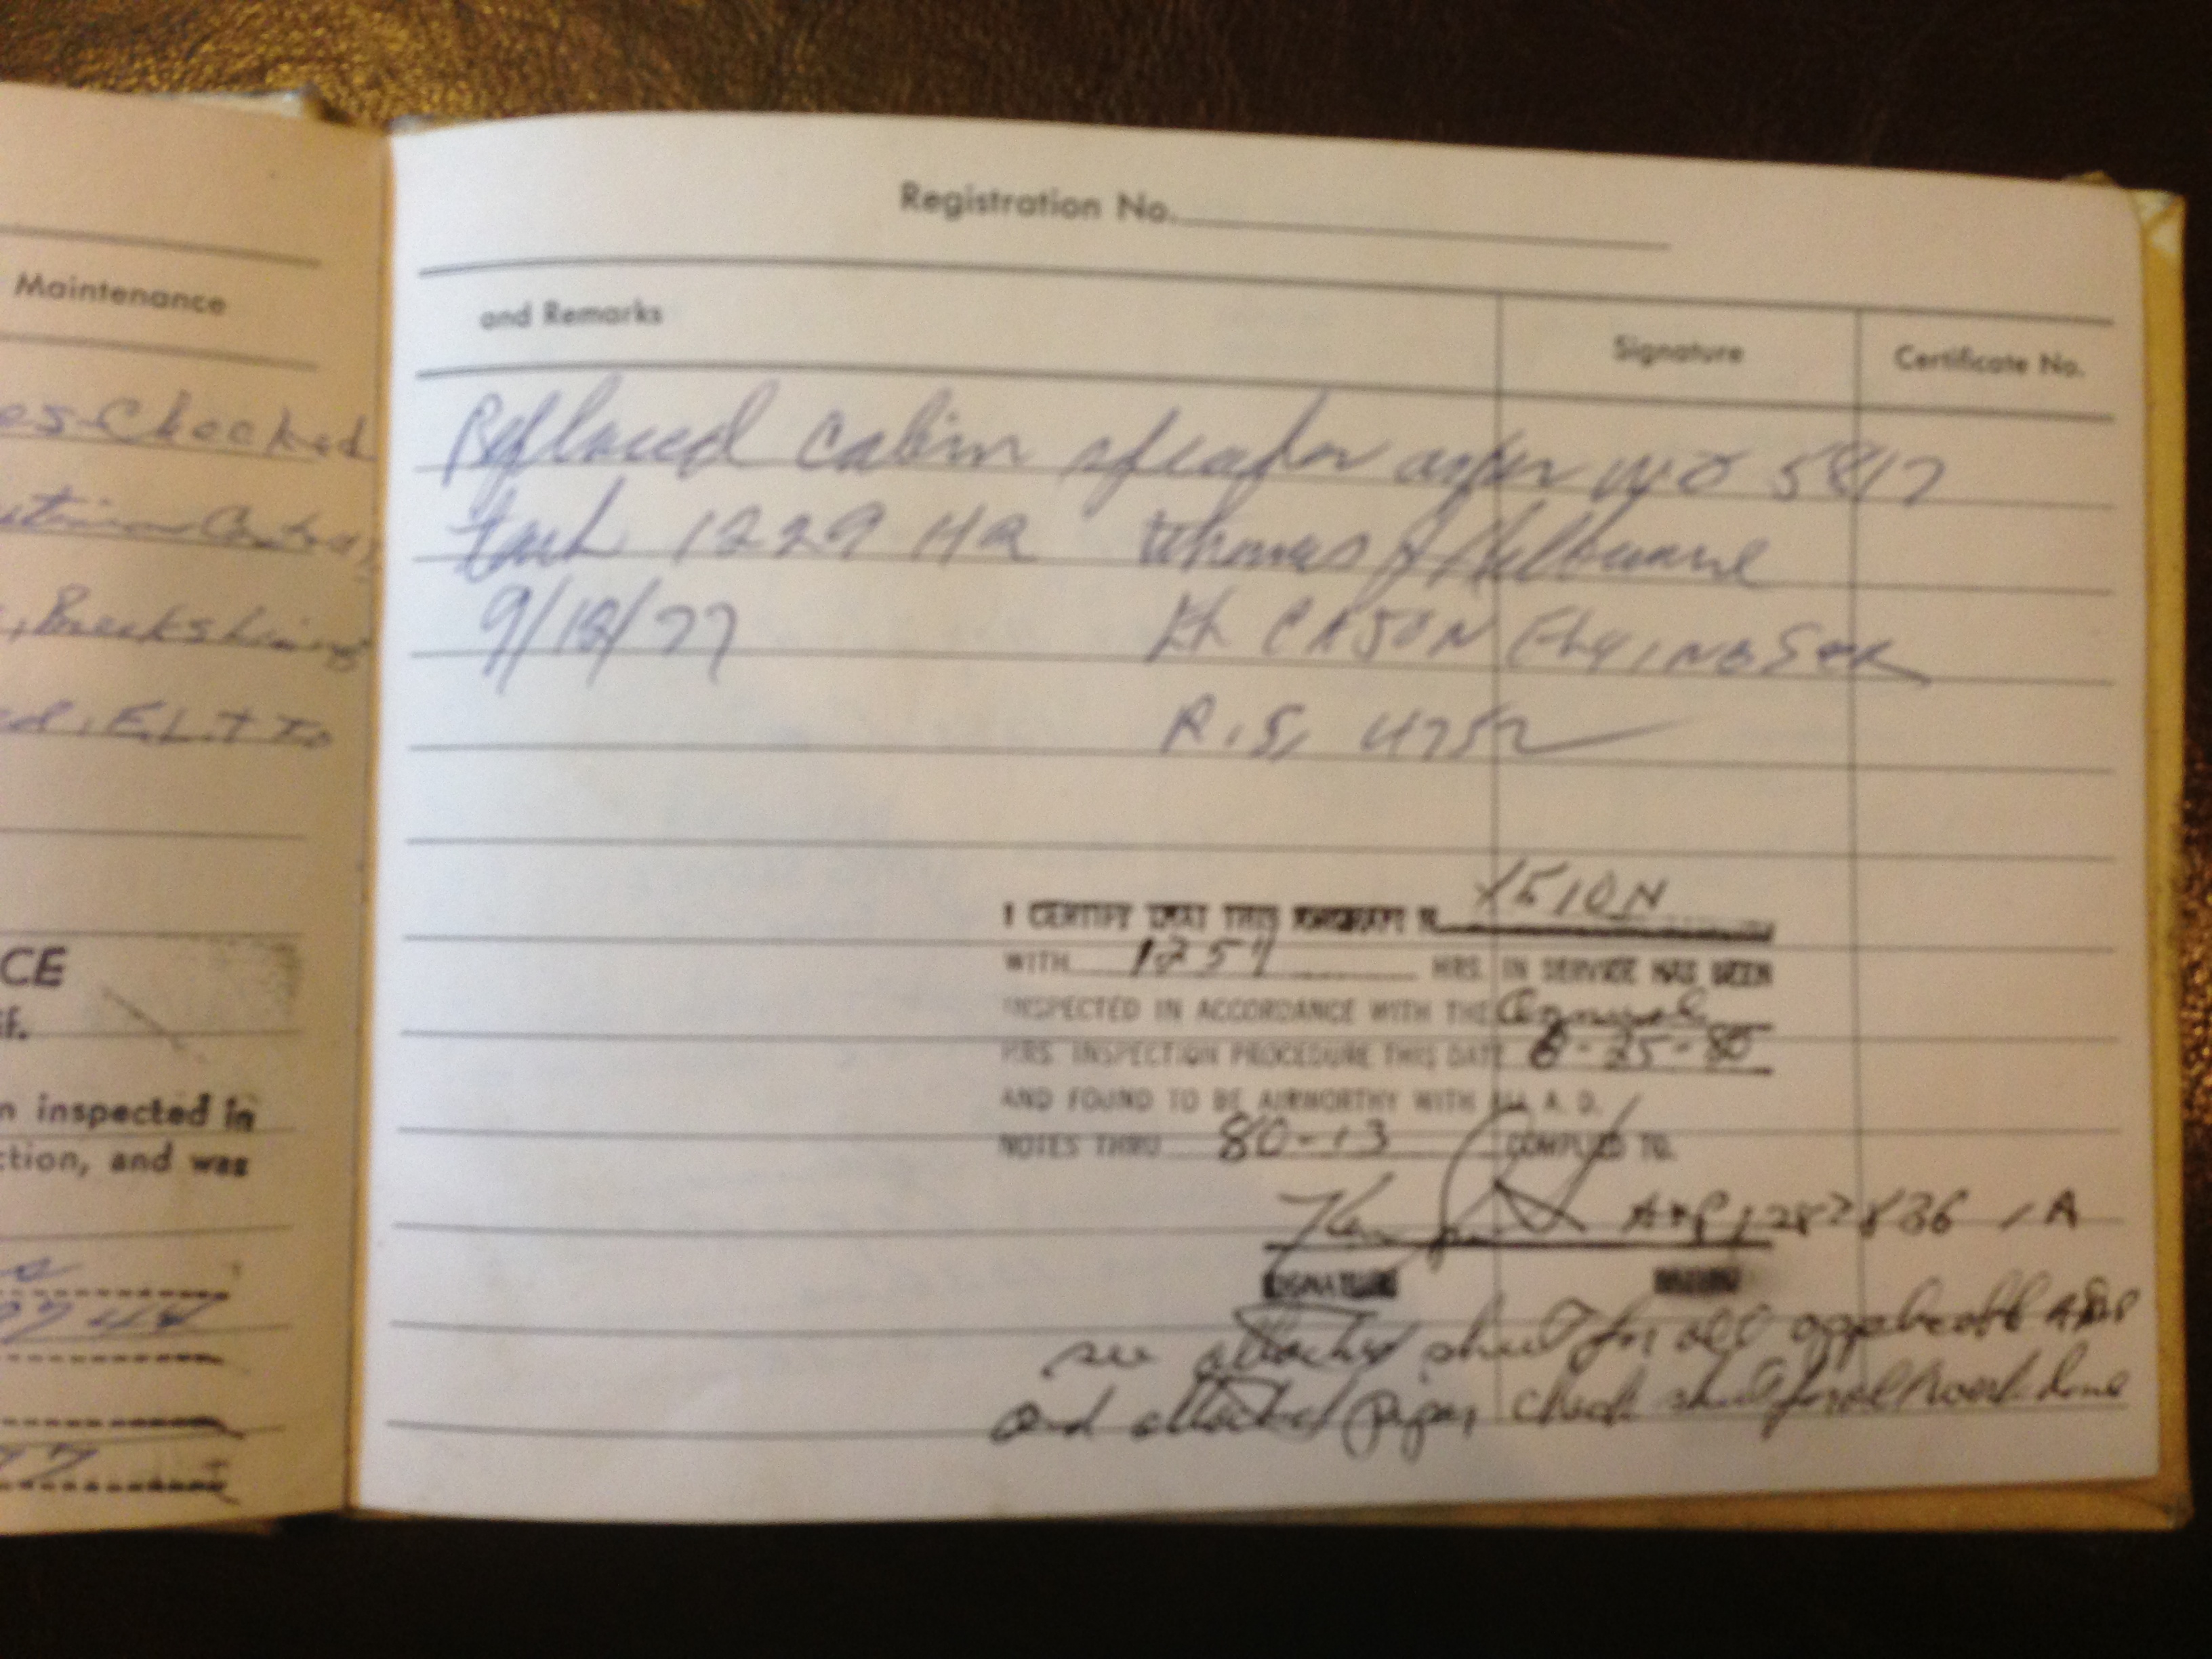 Maintenance
es Checked
ed, E.L.T To
CE
n inspected in
ction, and was
Registration No.
and Remarks
Signature
Certificate No.
Replaced Cabin speaker as per WO 5817
tach 1229 HR Thomas J
9/18/77
CAJON FLYING SER
R.S. 4752
I CERTIFY THAT THIS AIRCRAFT N 1510N
WITH 1257 HRS. IN SERVICE HAS BEEN
INSPECTED IN ACCORDANCE WITH THE Annual
HRS. INSPECTION PROCEDURE THIS DATE 6-25-80
AND FOUND TO BE AIRWORTHY WITH ALL A. D.
NOTES THRU 80-13 COMPLIED TO.
A&P 1282836 IA
SIGNATURE
see attached sheet for all applicable ADs
and attached Piper check sheet for all work done